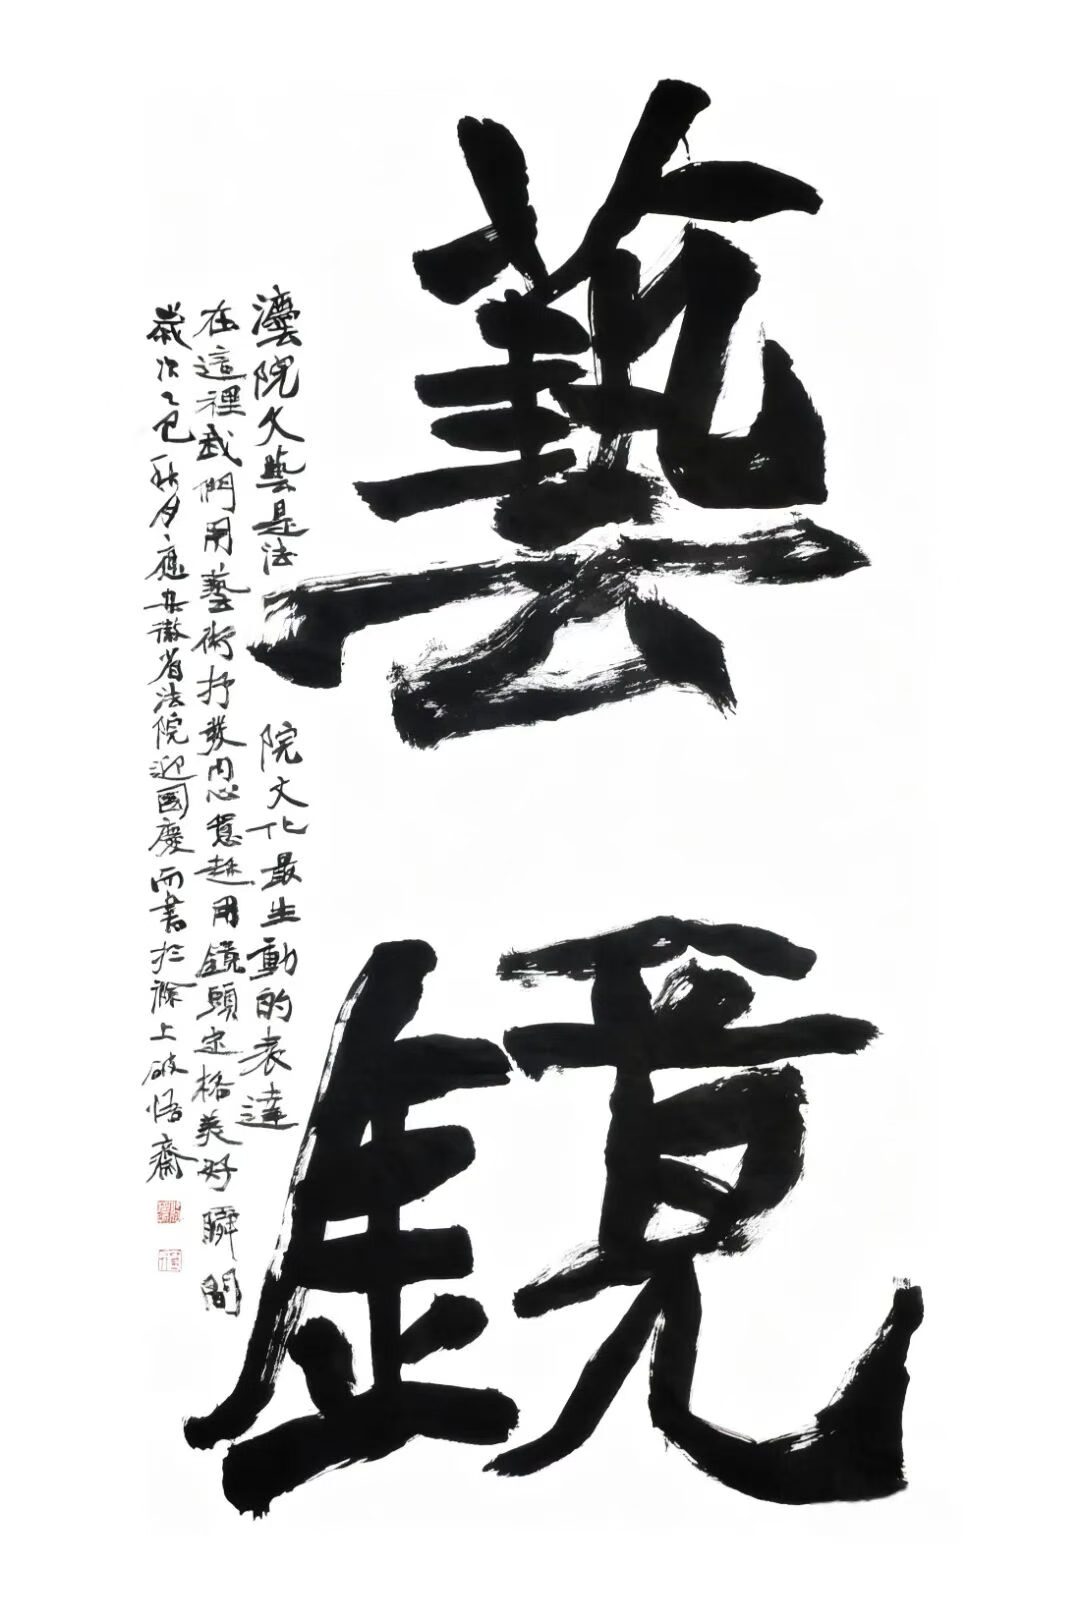 藝鏡
灋院文藝是法院文化最生動的表達
在這裡我們用藝術抒發内心意趣用鏡頭定格美好瞬間
歲次乙巳秋月應安徽省法院迎國慶而書於滁上破悟齋